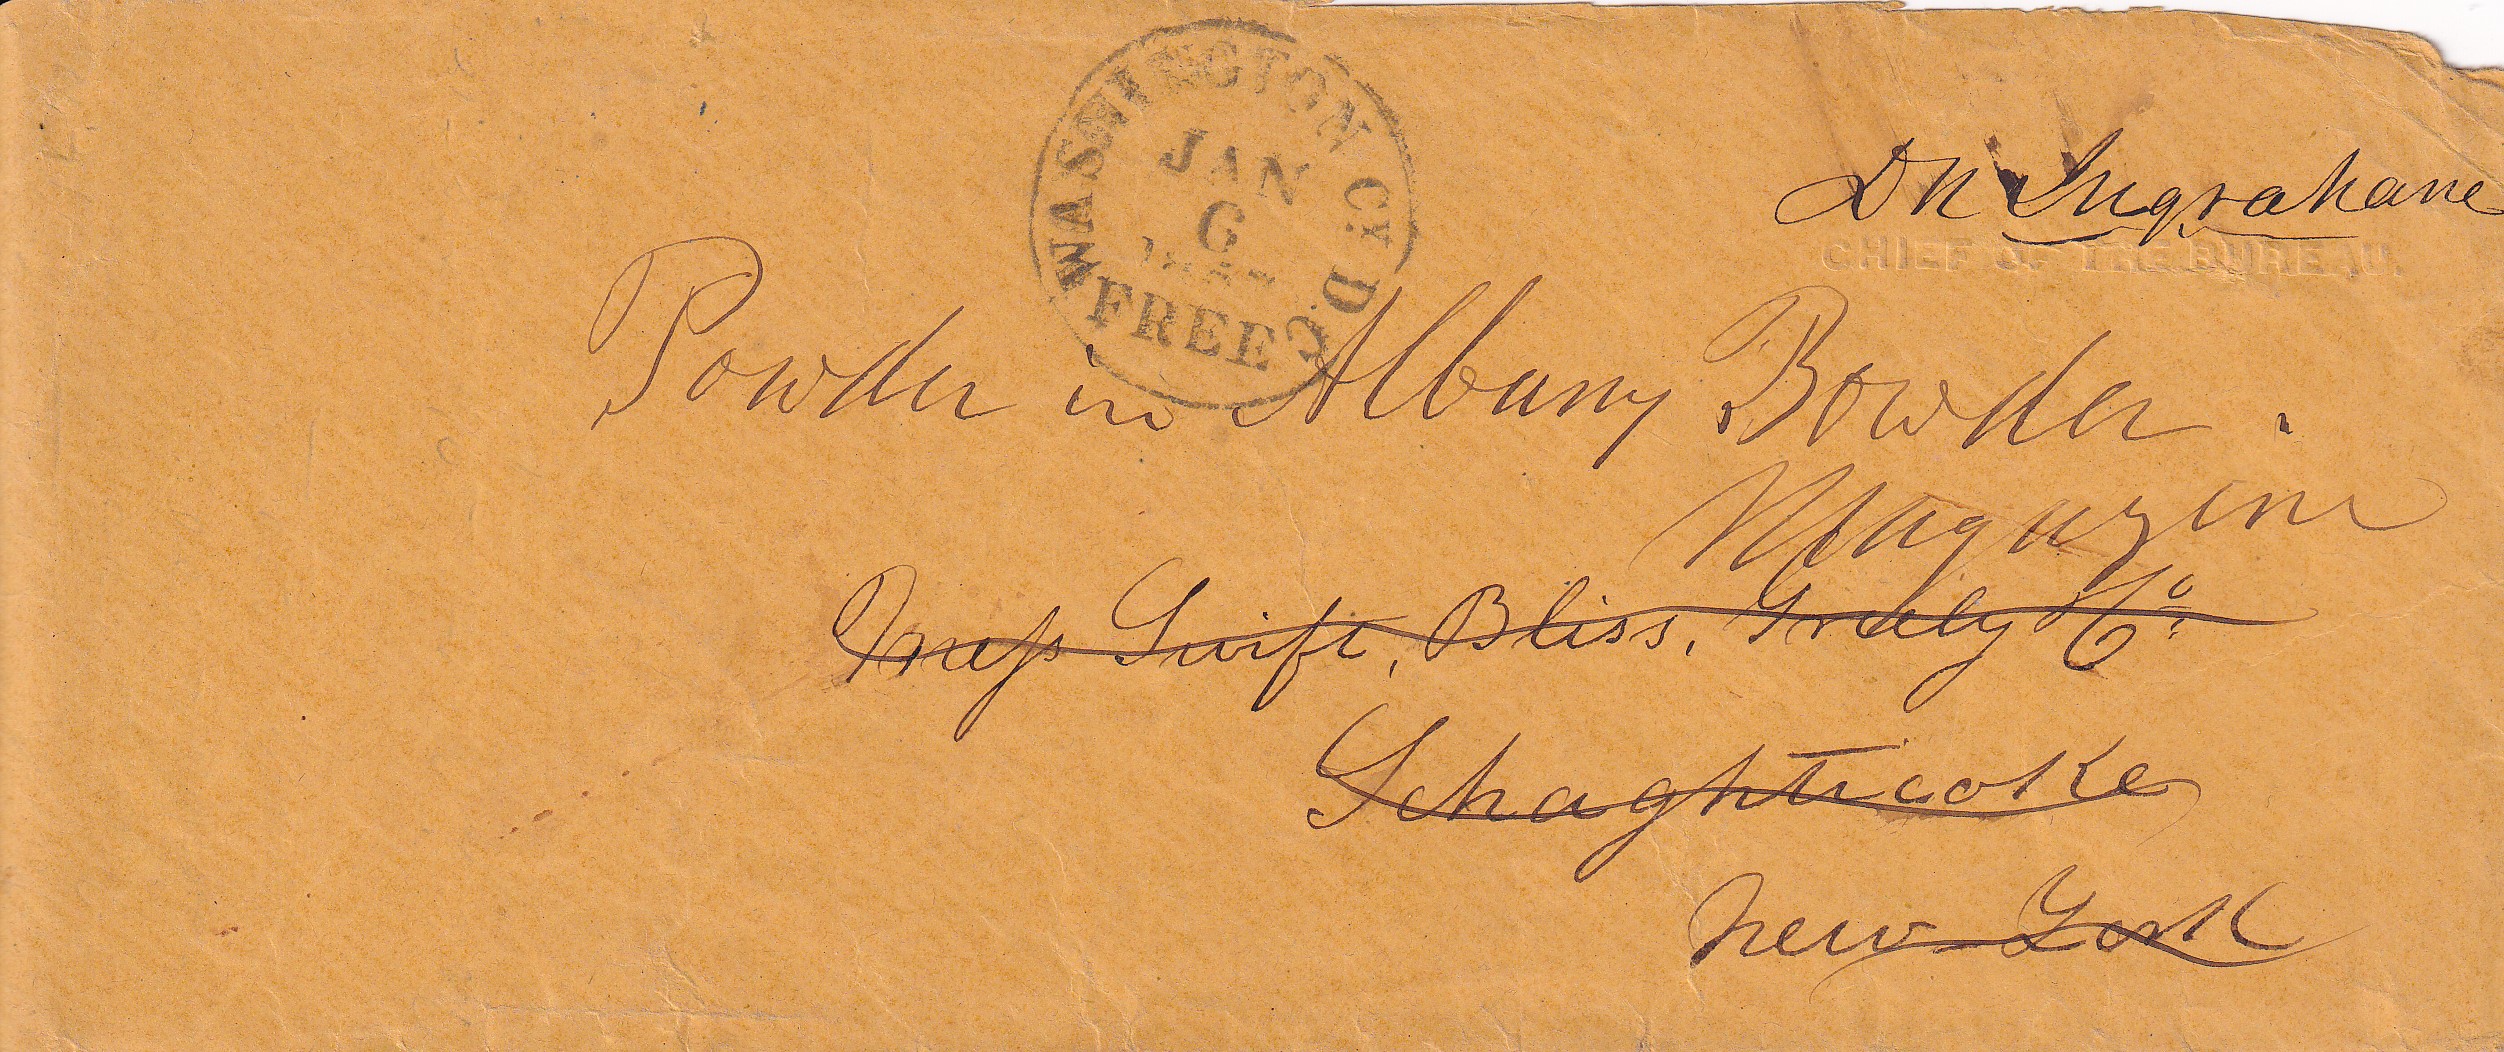 WASHINGTON CY. D.C.
JAN
6
FREE
DN Ingraham
CHIEF OF THE BUREAU.
Powder in Albany Powder
Magazine
Mess Swift, Bliss, Grely & Co.
Schaghticoke
New York